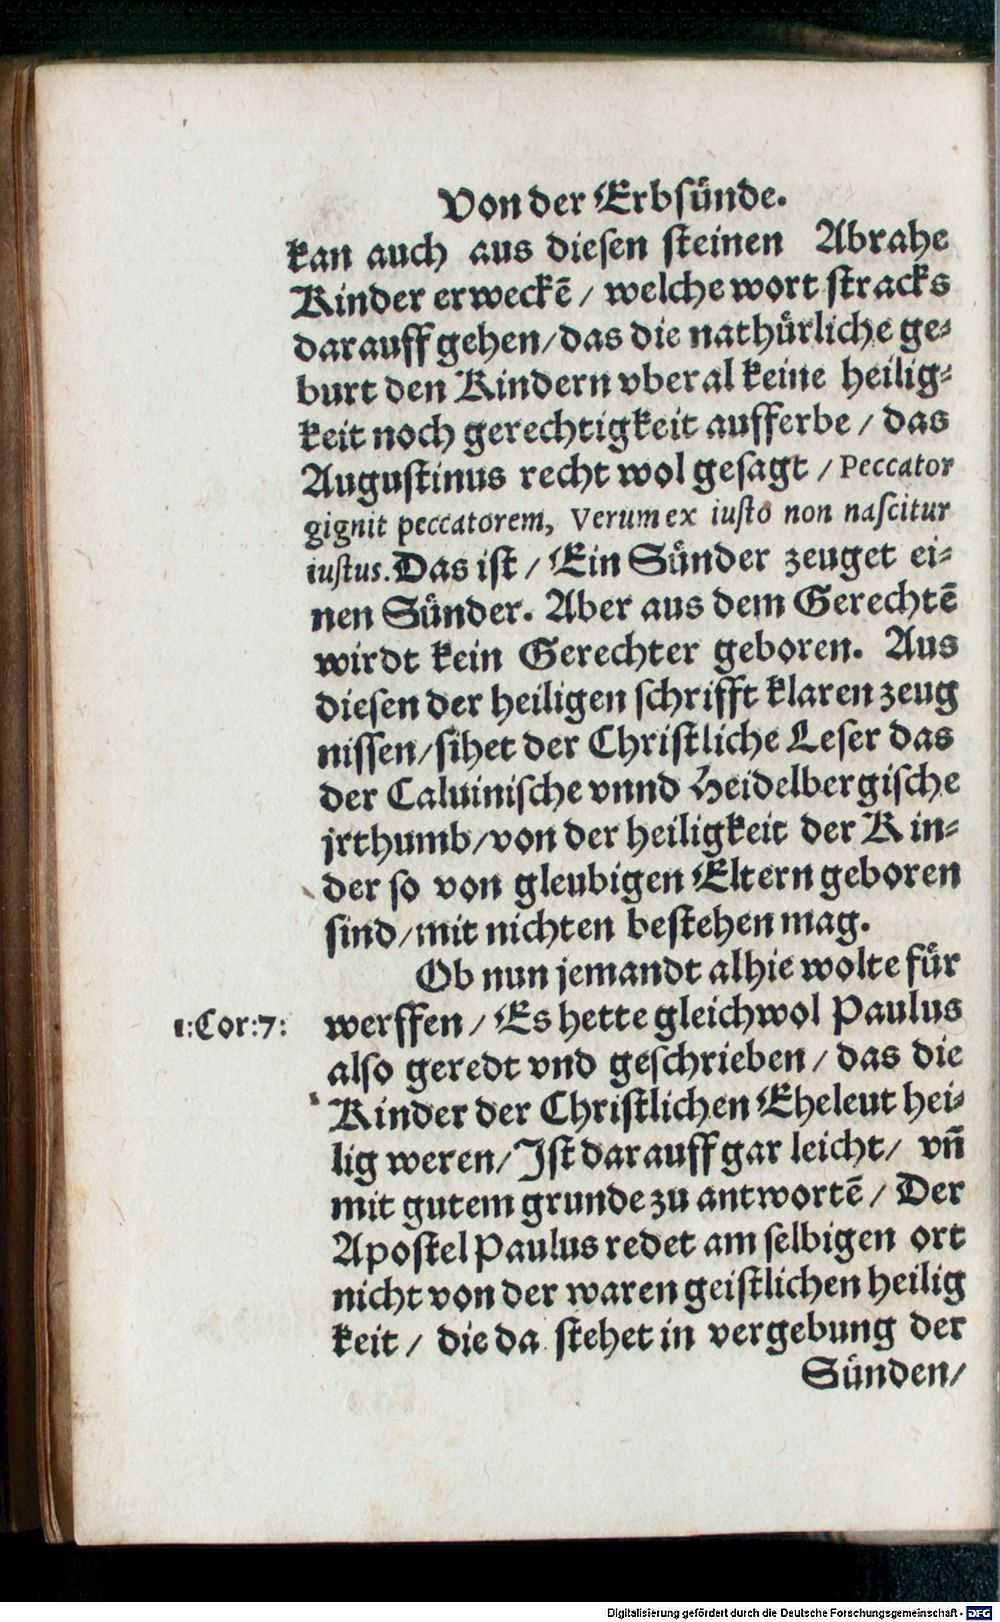 Von der Erbsünde.
kan auch aus diesen steinen Abrahe
Kinder erweckẽ / welche wort stracks
darauff gehen/das die nathürliche ge-
burt den Kindern vberal keine heilig-
keit noch gerechtigkeit aufferbe / das
Augustinus recht wol gesagt / Peccator
gignit peccatorem, Verum ex iusto non nascitur
iustus. Das ist / Ein Sünder zeuget ei-
nen Sünder. Aber aus dem Gerechtẽ
wirdt kein Gerechter geboren. Aus
diesen der heiligen schrifft klaren zeug
nissen/sihet der Christliche Leser das
der Caluinische vnnd Heidelbergische
jrthumb/von der heiligkeit der Kin-
der so von gleubigen Eltern geboren
sind/mit nichten bestehen mag.
Ob nun jemandt alhie wolte für
1:Cor:7: werffen / Es hette gleichwol Paulus
also geredt vnd geschrieben / das die
Kinder der Christlichen Eheleut hei-
lig weren/Ist darauff gar leicht/ vñ
mit gutem grunde zu antwortẽ / Der
Apostel Paulus redet am selbigen ort
nicht von der waren geistlichen heilig
keit / die da stehet in vergebung der
Sünden/
Digitalisierung gefördert durch die Deutsche Forschungsgemeinschaft - DFG